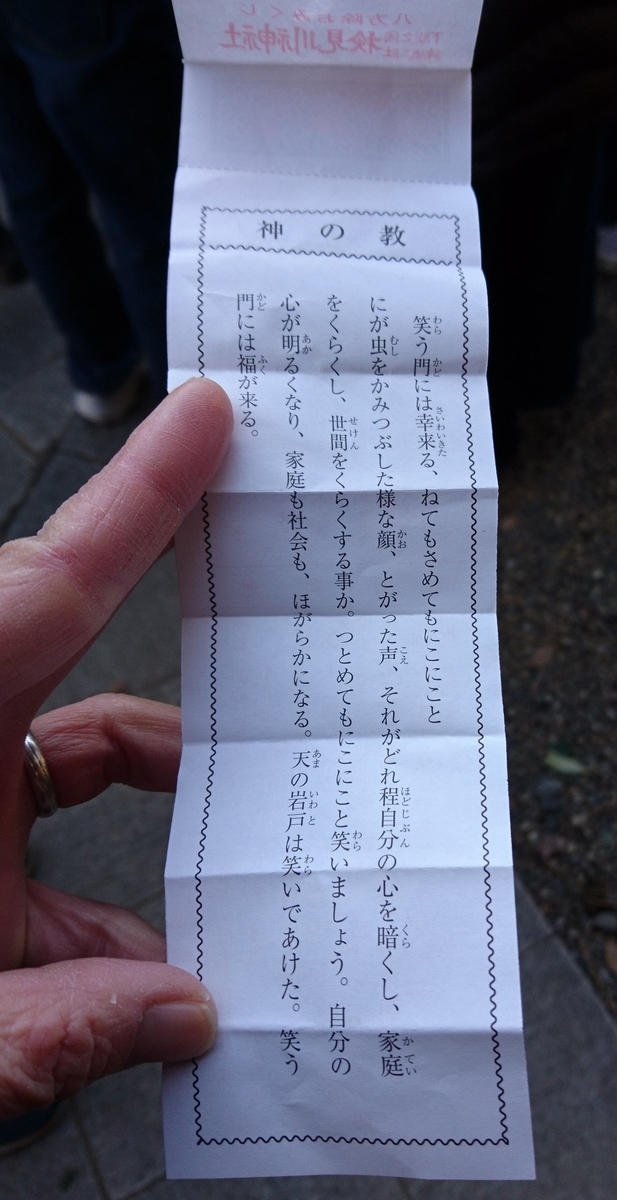 八方除おみくじ
下総之国 検見川神社
神の教
笑う門には幸来る、ねてもさめてもにこにこと
にが虫をかみつぶした様な顔、とがった声、それがどれ程自分の心を暗くし、家庭
をくらくし、世間をくらくする事か。つとめてもにこにこと笑いましょう。自分の
心が明るくなり、家庭も社会も、ほがらかになる。天の岩戸は笑いであけた。笑う
門には福が来る。